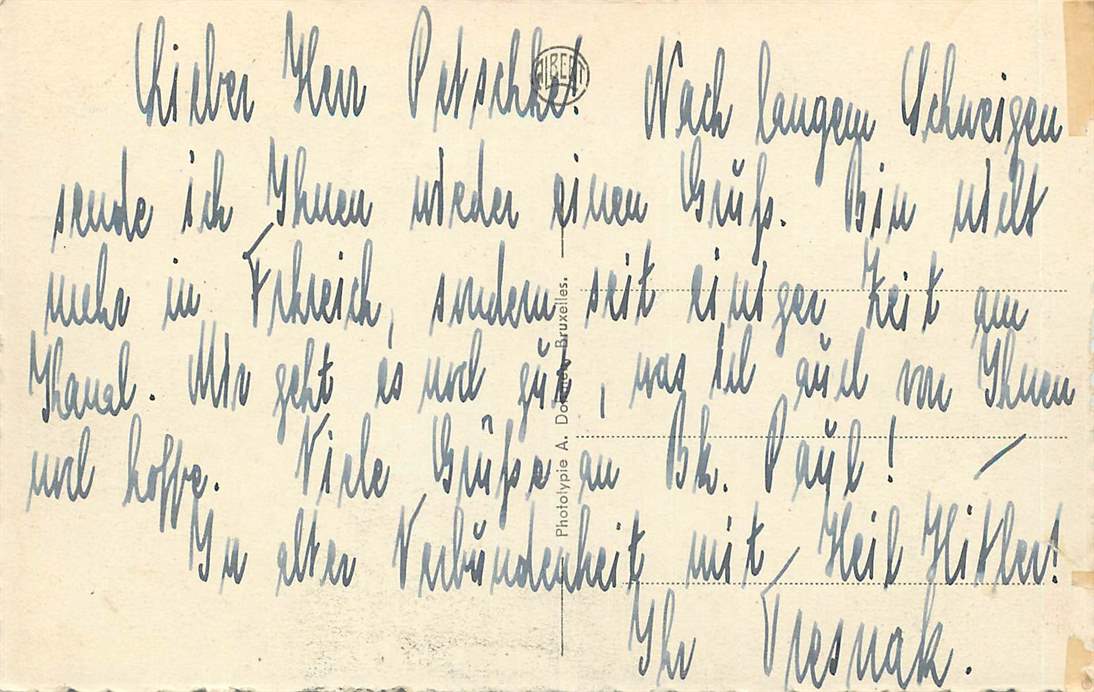 Lieber Herr Petschke! Nach langem Schweigen
sende ich Ihnen wieder einen Gruß. Bin nicht
mehr in Frkreich, sondern seit einiger Zeit am
Kanal. Mir geht es noch gut, was ich auch von Ihnen
noch hoffe. Viele Grüße an Bk. Paul! –
In alter Verbundenheit mit Heil Hitler!
Ihr Tresnak.
ALBERT
Photolypie A. Bruxelles.